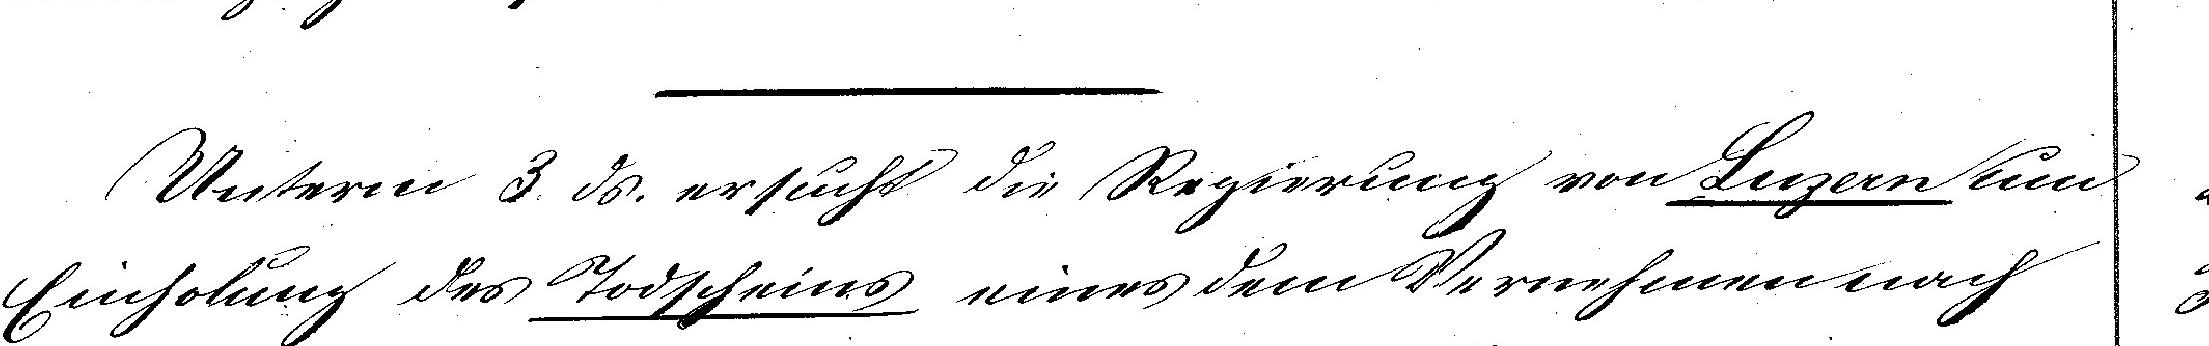 Unterm 3. ds. ersucht die Regierung von Luzern um
Einholung des Todscheins eines dem Vernehmen nach